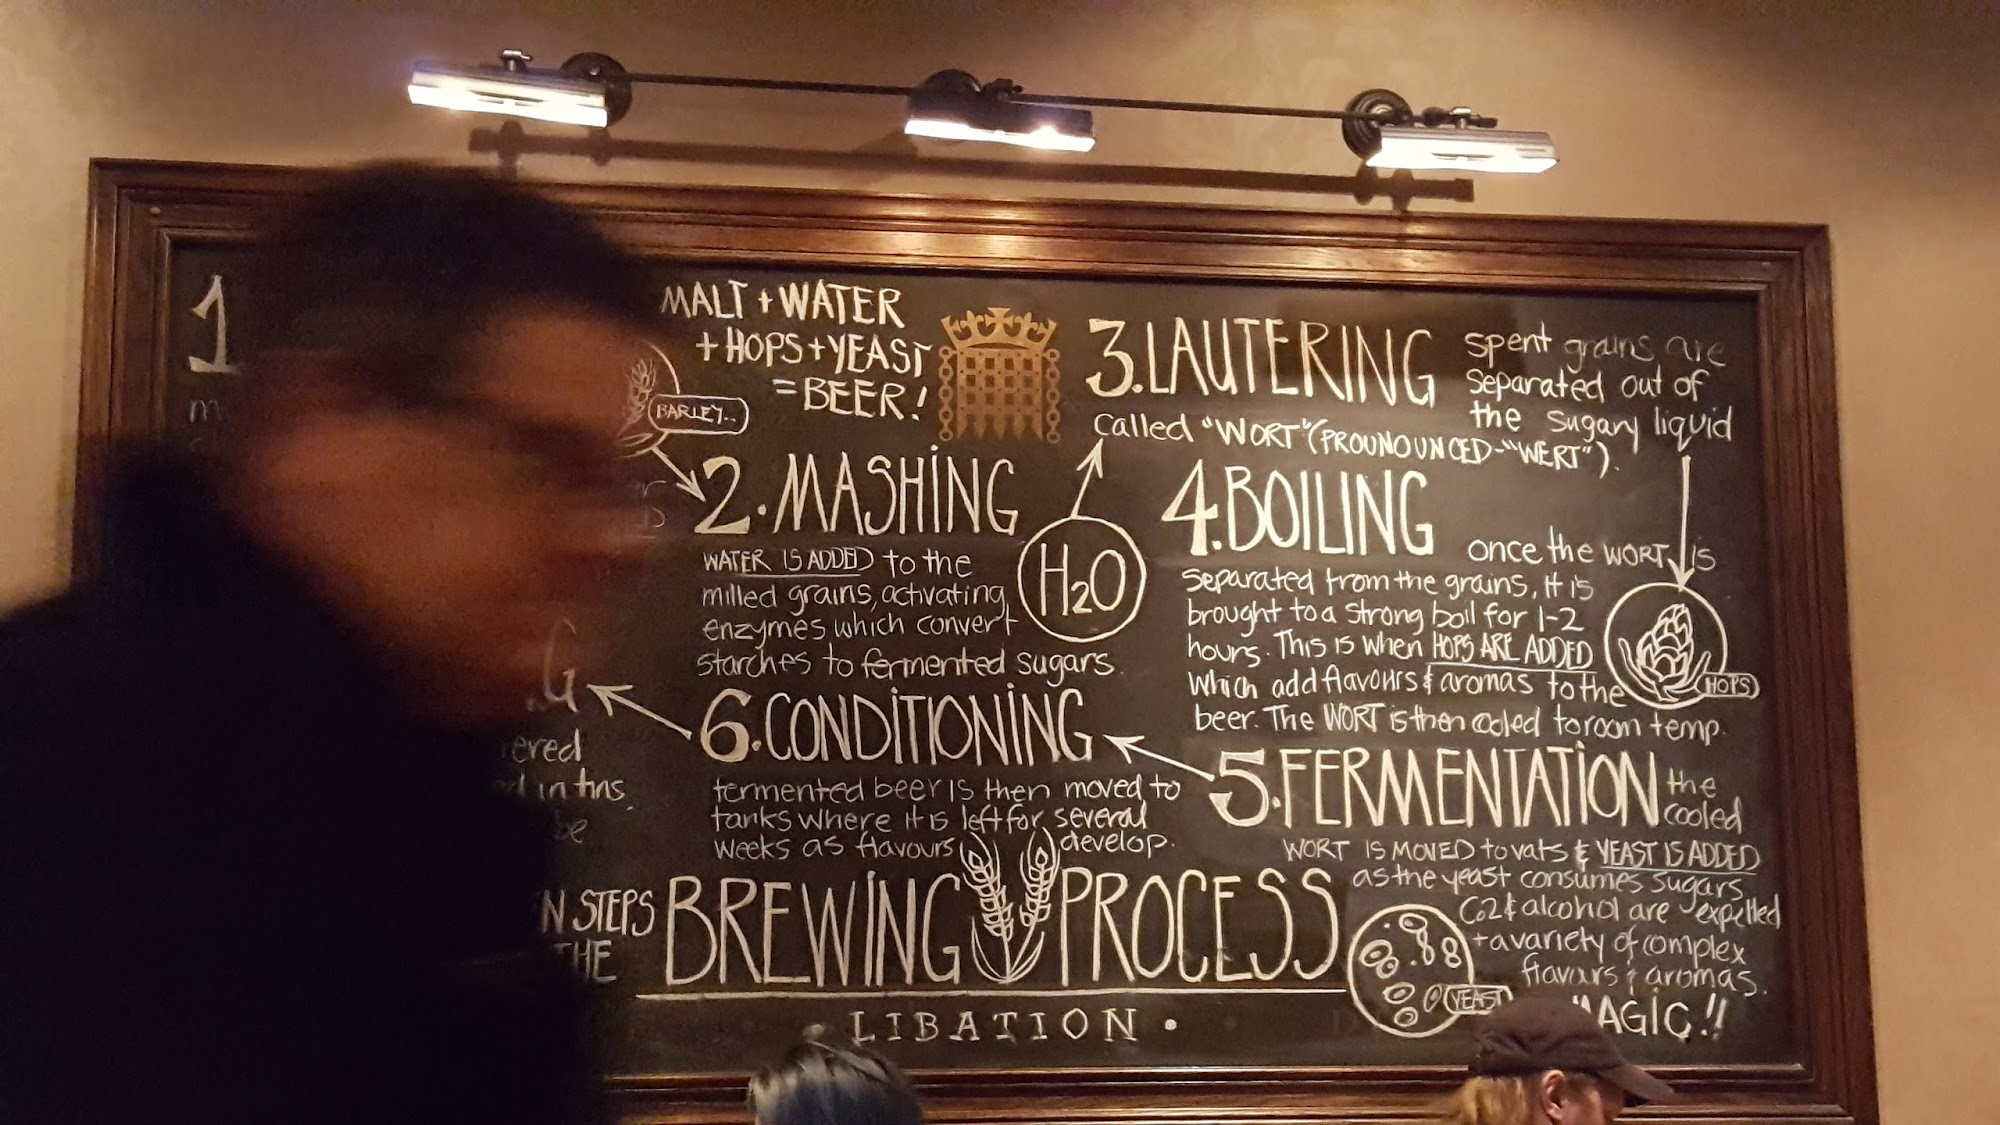 1
MALT + WATER
+ HOPS + YEAST
= BEER!
BARLEY..
2. MASHING
WATER IS ADDED to the
milled grains, activating
enzymes which convert
starches to fermented sugars.
H2O
3. LAUTERING
spent grains are
separated out of
the sugary liquid
called "WORT" (PROUNOUNCED-"WERT").
4. BOILING
once the WORT IS
separated from the grains, it is
brought to a strong boil for 1-2
hours. This is when HOPS ARE ADDED
which add flavours & aromas to the
beer. The WORT is then cooled to room temp.
HOPS
5. FERMENTATION
the
cooled
WORT IS MOVED to vats & YEAST IS ADDED
as the yeast consumes sugars
Co2 & alcohol are expelled
+ a variety of complex
flavours & aromas.
YEAST
MAGIC!!
6. CONDITIONING
fermented beer is then moved to
tanks where it is left for several
weeks as flavours develop.
G
ered
in tins.
be
STEPS
THE
BREWING PROCESS
LIBATION.